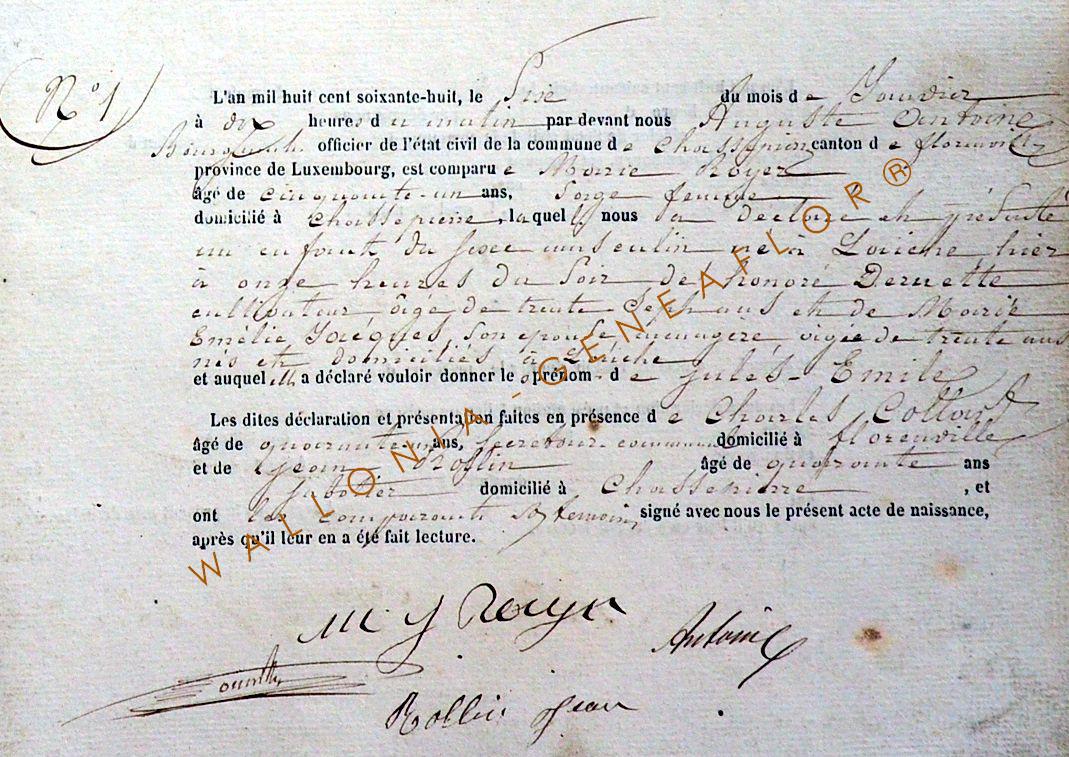 N° 1
L'an mil huit cent soixante-huit, le Sise du mois de Janvier
à dix heures du matin par devant nous Auguste Antoine
Bourgmestre officier de l'état civil de la commune de Chassepierre canton de florenville
province de Luxembourg, est comparue Marie Royer
âgé de cinquante-un ans, Sage femme
domicilié à Chassepierre, laquelle nous a déclaré et présenté
un enfant du sexe masculin né à Laiche, hier
à onze heures du Soir, de honoré Deruette
cultivateur âgé de trente-sept ans et de Marie
Emélie Jacques son epouse, ménagère agée de trente ans
nés et domiciliés à Laiche
et auquel elle a déclaré vouloir donner le prénom de Jules-Emile
Les dites déclaration et présentation faites en présence de Charles Collard
âgé de quarante ans, Secrétaire communal domicilié à florenville
et de Jean Rollin âgé de quarante ans
Sabotier domicilié à Chassepierre, et
ont les comparants et temoins signé avec nous le présent acte de naissance,
après qu'il leur en a été fait lecture.
WALLONIA-GENEAFLOR®
Antoine
Rollin Jean